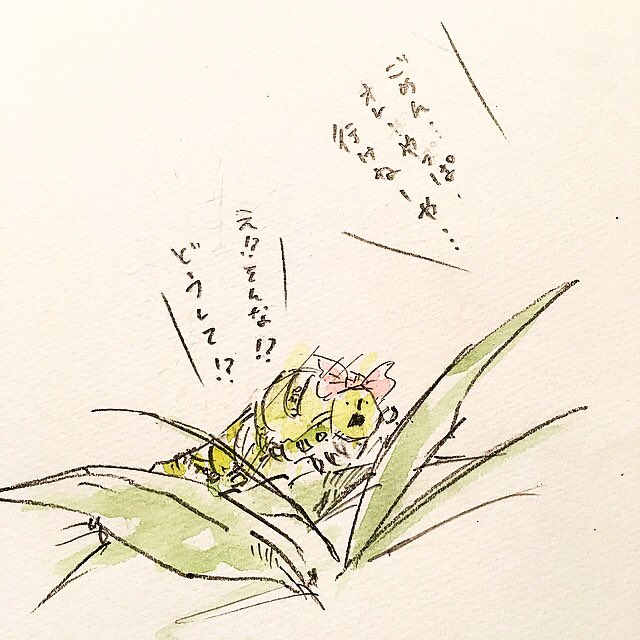 ごめん…やっぱ
オレ…
行けねーや…
え!?そんな!?
どうして!?